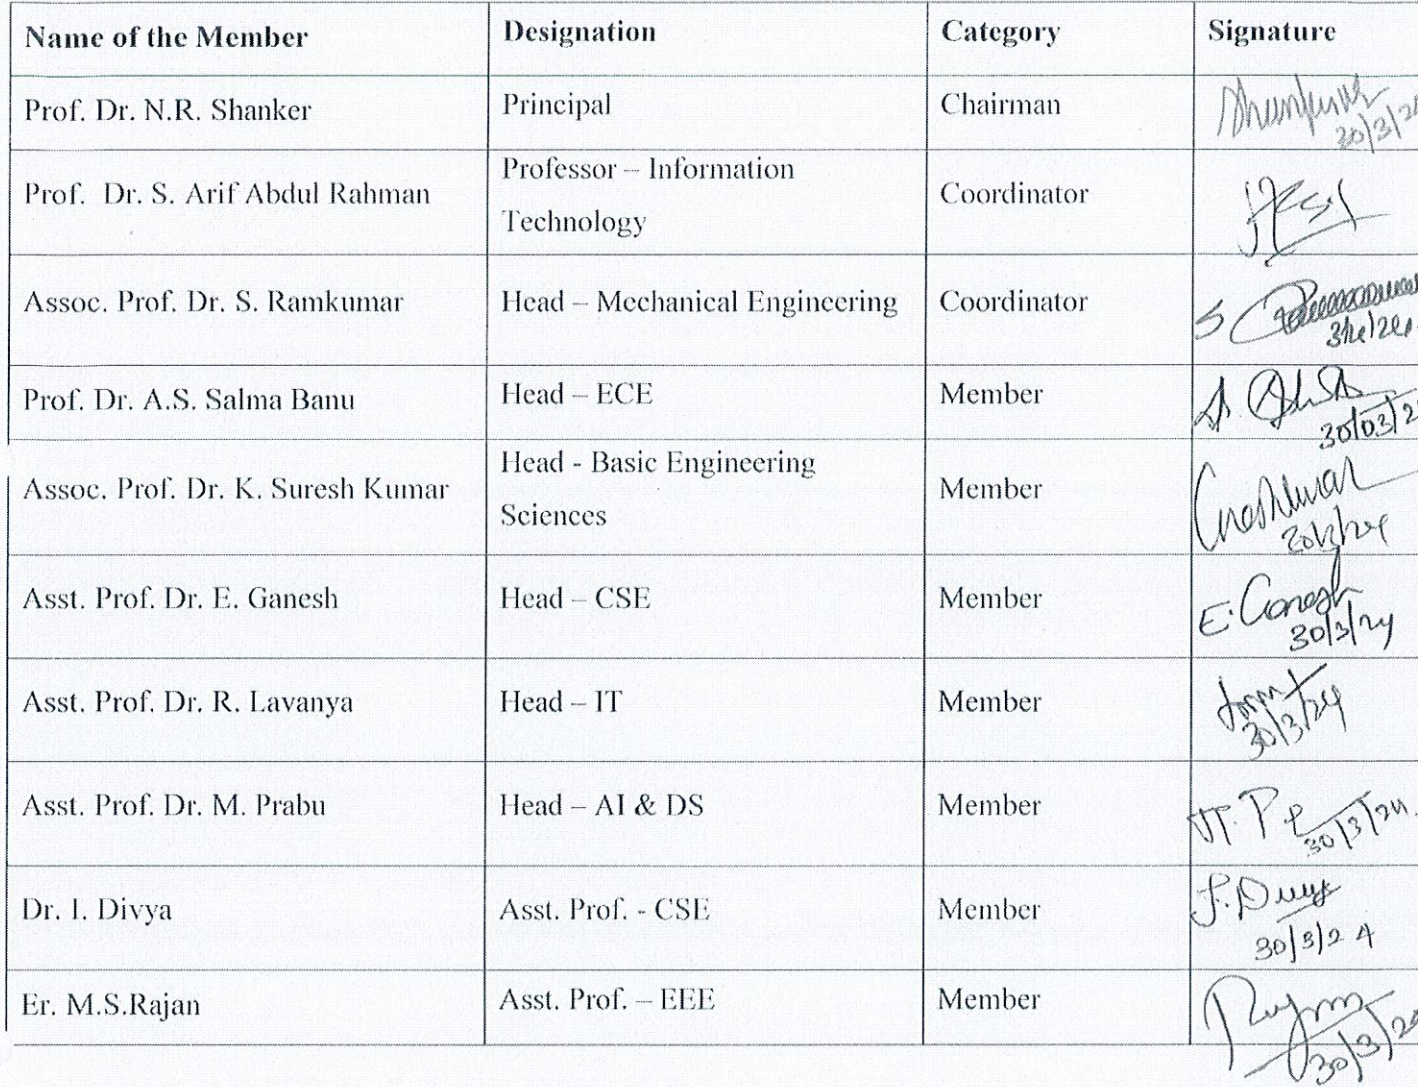 Name of the Member Designation Category Signature
Prof. Dr. N.R. Shanker Principal Chairman
30/3/24
Prof. Dr. S. Arif Abdul Rahman Professor – Information Coordinator
Technology
Assoc. Prof. Dr. S. Ramkumar Head – Mechanical Engineering Coordinator S
Prof. Dr. A.S. Salma Banu Head – ECE Member
30/03/2
Assoc. Prof. Dr. K. Suresh Kumar Head - Basic Engineering Member
Sciences
30/3/24
Asst. Prof. Dr. E. Ganesh Head – CSE Member E. Ganesh
30/3/24
Asst. Prof. Dr. R. Lavanya Head – IT Member
30/3/24
Asst. Prof. Dr. M. Prabu Head – AI & DS Member
30/3/24.
Dr. I. Divya Asst. Prof. - CSE Member
30/3/24
Er. M.S.Rajan Asst. Prof. – EEE Member
30/3/24